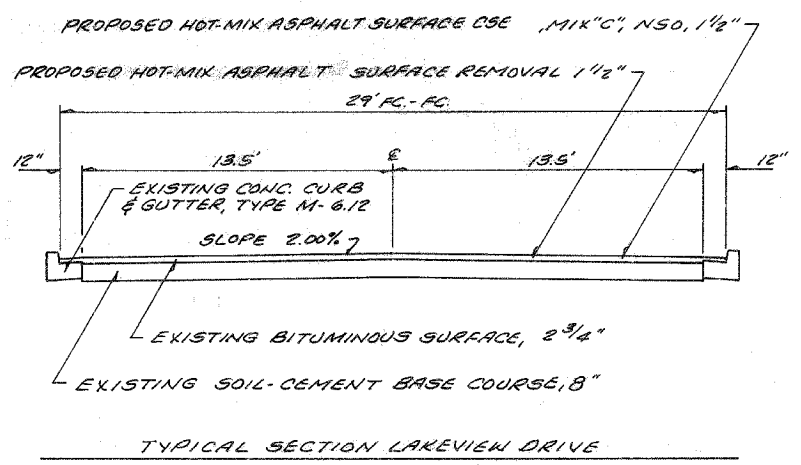 PROPOSED HOT-MIX ASPHALT SURFACE CSE ,MIX"C", N50, 1 1/2"
PROPOSED HOT-MIX ASPHALT SURFACE REMOVAL 1 1/2"
29' FC.-FC.
12" 13.5' ℄ 13.5' 12"
EXISTING CONC. CURB
& GUTTER, TYPE M-6.12
SLOPE 2.00%
EXISTING BITUMINOUS SURFACE, 2 3/4"
EXISTING SOIL-CEMENT BASE COURSE, 8"
TYPICAL SECTION LAKEVIEW DRIVE